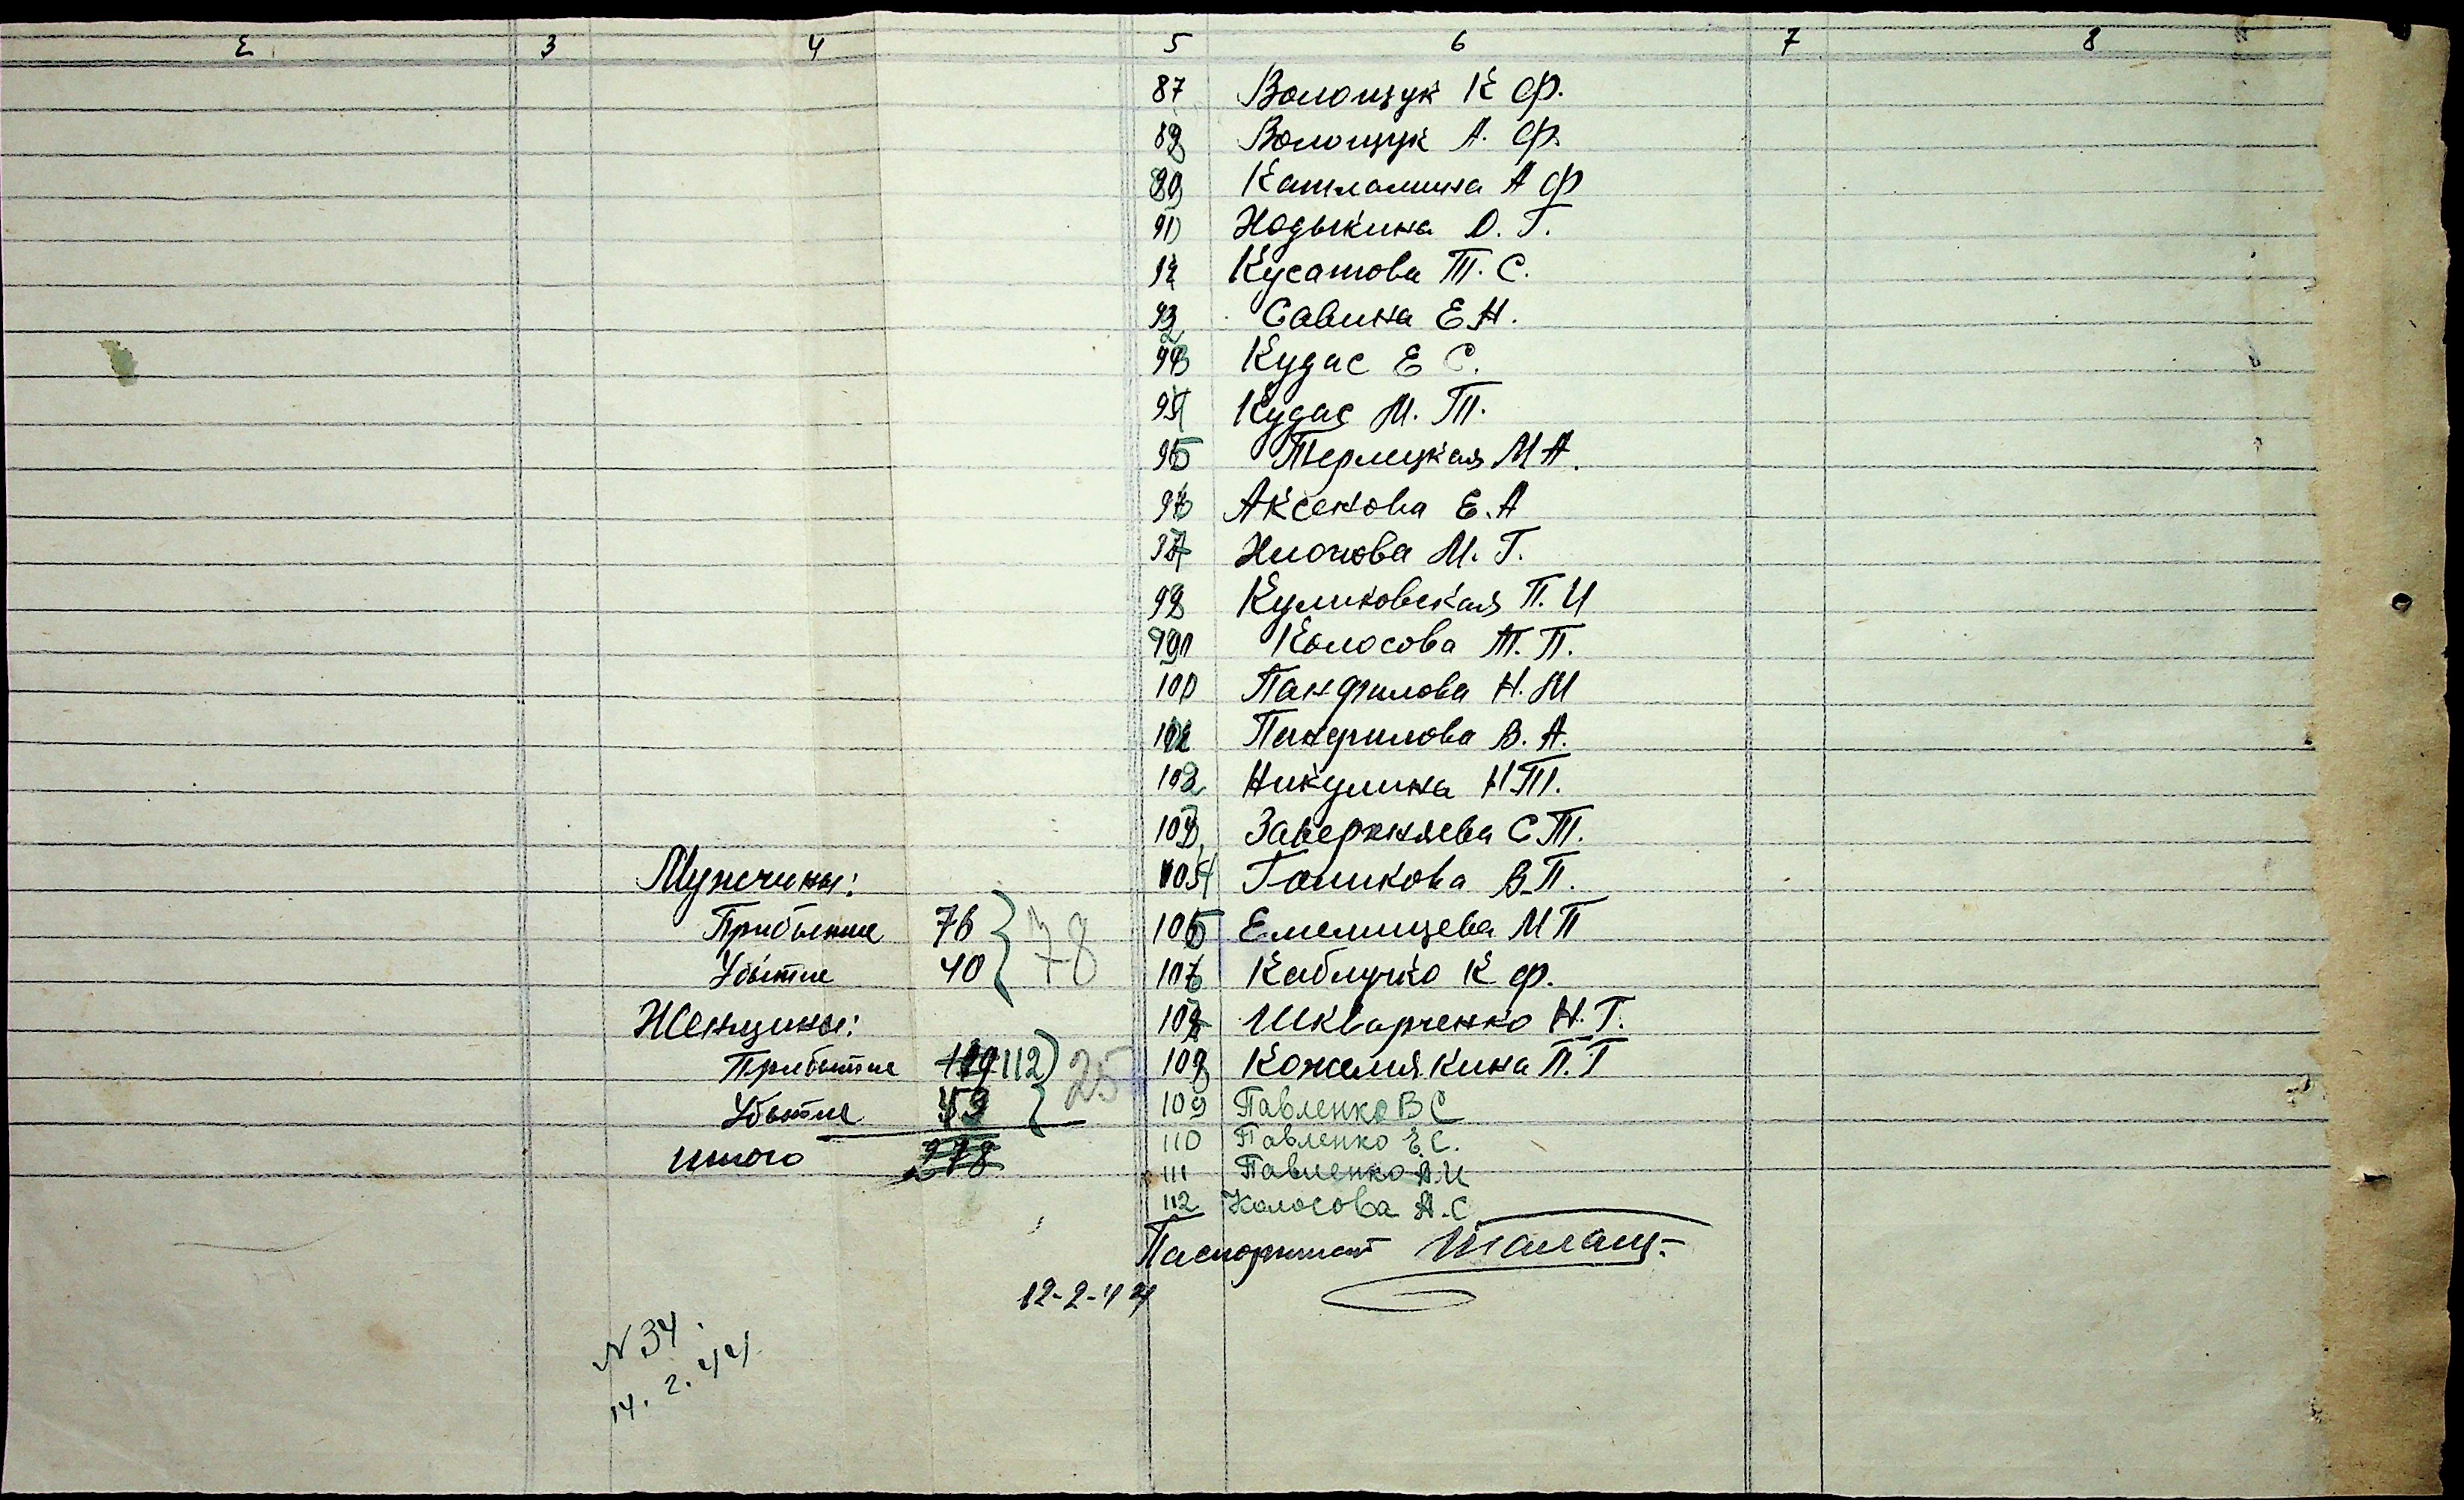 2 3 4 5 6 7 8
87 Волощук К Ф.
88 Волощук А. Ф.
89 Катламина А Ф
90 Нодыкина О. Г.
91 Кусатова Т. С.
92 Савина Е Н.
93 Кудас Е С.
94 Кудас М. Т.
95 Терлецкая М А.
96 Аксенова Е. А
97 М. Г.
98 Куликовская П. И
99 Колосова Т. П.
100 Панфилова Н. М
101 Панфилова В. А.
102 Никулина Н Т.
103 С Т.
104 Голикова В. П.
105 Емелищева М П
106 Каблучко К Ф.
107 Шкварченко Н. Г.
108 Кожемякина П. Г
109 Павленко В С
110 Павленко Е. С.
111 Павленко А. И
112 Колосова А. С.
Мужчины:
Прибытие 76
Убытие 40
78
Женщины:
Прибытие 112
Убытие
25
итого 278
Паспортист
12-2-44
N 34.
14. 2. 44